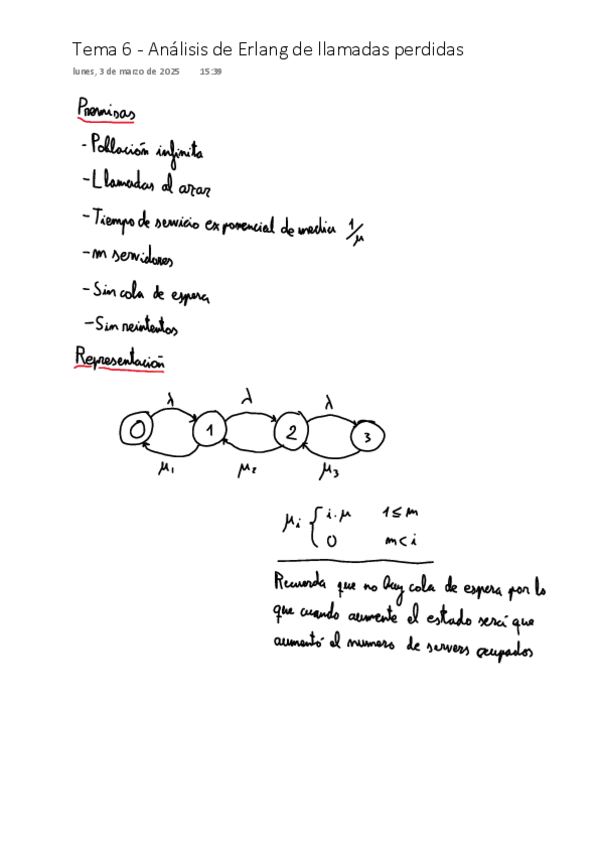 Tema 6 - Análisis de Erlang de llamadas perdidas
lunes, 3 de marzo de 2025 15:39
Premisas
-Población infinita
-Llamadas al azar
-Tiempo de servicio exponencial de media 1/μ
-m servidores
-Sin cola de espera
-Sin reintentos
Representación
λ λ λ
0 1 2 3
μ₁ μ₂ μ₃
μᵢ { i·μ 1≤m
0 m<i
Recuerda que no hay cola de espera por lo
que cuando aumente el estado será que
aumentó el numero de servers ocupados